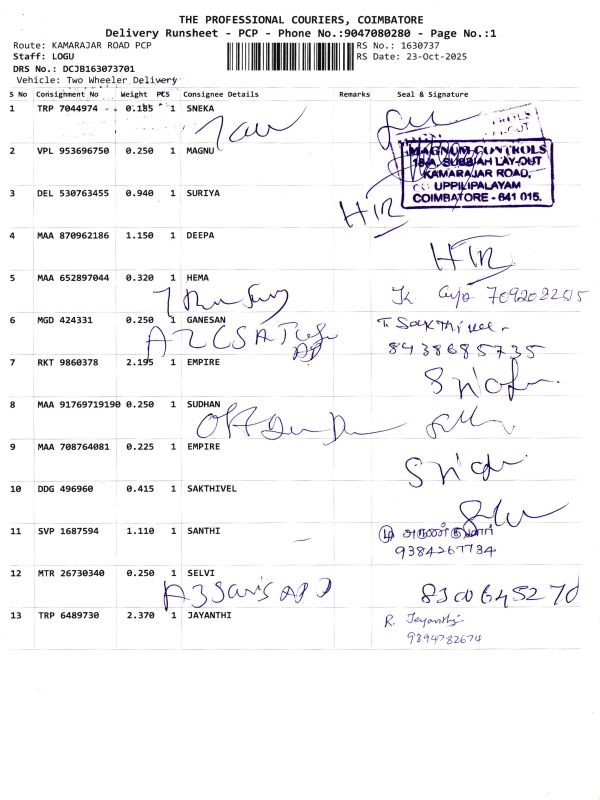 THE PROFESSIONAL COURIERS, COIMBATORE
Delivery Runsheet - PCP - Phone No.:9047080280 - Page No.:1
Route: KAMARAJAR ROAD PCP RS No.: 1630737
Staff: LOGU RS Date: 23-Oct-2025
DRS No.: DCJB163073701
Vehicle: Two Wheeler Delivery
S No Consignment No Weight PCS Consignee Details Remarks Seal & Signature
1 TRP 7044974 0.185 1 SNEKA
2 VPL 953696750 0.250 1 MAGNU
MAGNUM CONTROLS
18-A, SUBBIAH LAY-OUT
KAMARAJAR ROAD,
UPPILIPALAYAM
COIMBATORE - 641 015.
3 DEL 530763455 0.940 1 SURIYA
4 MAA 870962186 1.150 1 DEEPA
5 MAA 652897044 0.320 1 HEMA
6 MGD 424331 0.250 1 GANESAN
T. Sakthivel
8438685735
7 RKT 9860378 2.195 1 EMPIRE
8 MAA 91769719190 0.250 1 SUDHAN
9 MAA 708764081 0.225 1 EMPIRE
10 DDG 496960 0.415 1 SAKTHIVEL
11 SVP 1687594 1.110 1 SANTHI
அருண்குமார்
9384267734
12 MTR 26730340 0.250 1 SELVI
8300645270
13 TRP 6489730 2.370 1 JAYANTHI
R. Jeyanthi
9394782674